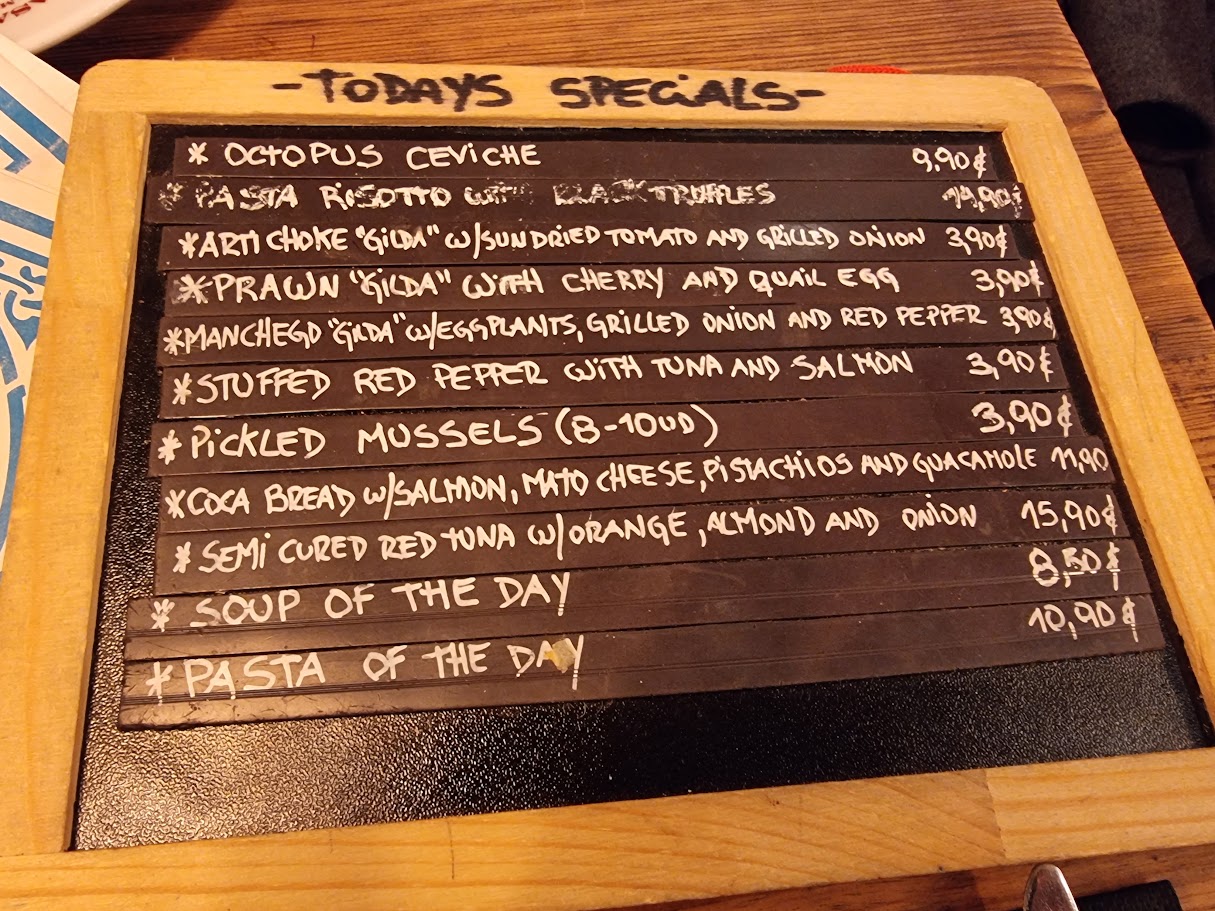 -TODAYS SPECIALS-
* OCTOPUS CEVICHE 9,90€
* PASTA RISOTTO WITH BLACK TRUFFLES 14,90€
*ARTICHOKE "GILDA" W/SUNDRIED TOMATO AND GRILLED ONION 3,90€
*PRAWN "GILDA" WITH CHERRY AND QUAIL EGG 3,90€
*MANCHEGO "GILDA" W/EGGPLANTS, GRILLED ONION AND RED PEPPER 3,90€
*STUFFED RED PEPPER WITH TUNA AND SALMON 3,90€
*PICKLED MUSSELS (8-10UD) 3,90€
*COCA BREAD W/SALMON, MATO CHEESE, PISTACHIOS AND GUACAMOLE 11,90
* SEMI CURED RED TUNA W/ORANGE, ALMOND AND ONION 15,90€
* SOUP OF THE DAY 8,50€
* PASTA OF THE DAY 10,90€